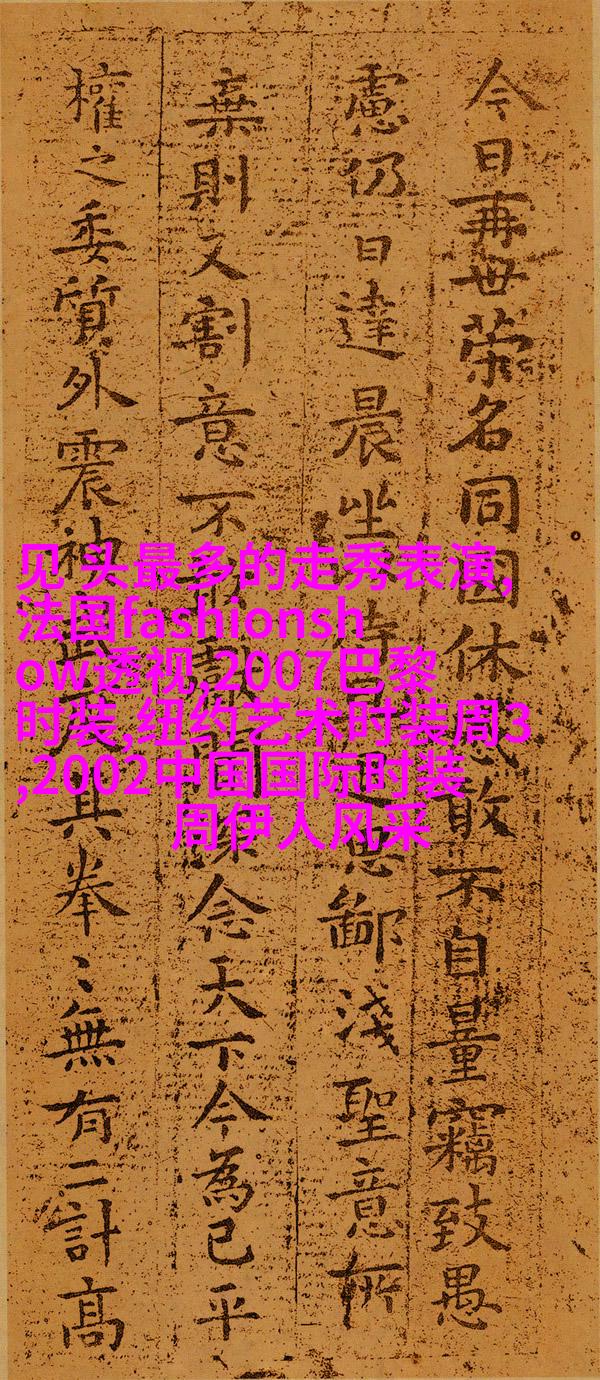 今日再世榮名同國休敢不自量竊致愚
慮仍日達晨坐待思鄙淺聖意所
棄則又割意不敢獻念天下今為已平
權之委質外震神武其拳〻無有二計高
见 头最多的走秀表演,
法国fashionsh
ow透视,2007巴黎
时装,纽约艺术时装周3
,2002中国国际时装
周伊人风采